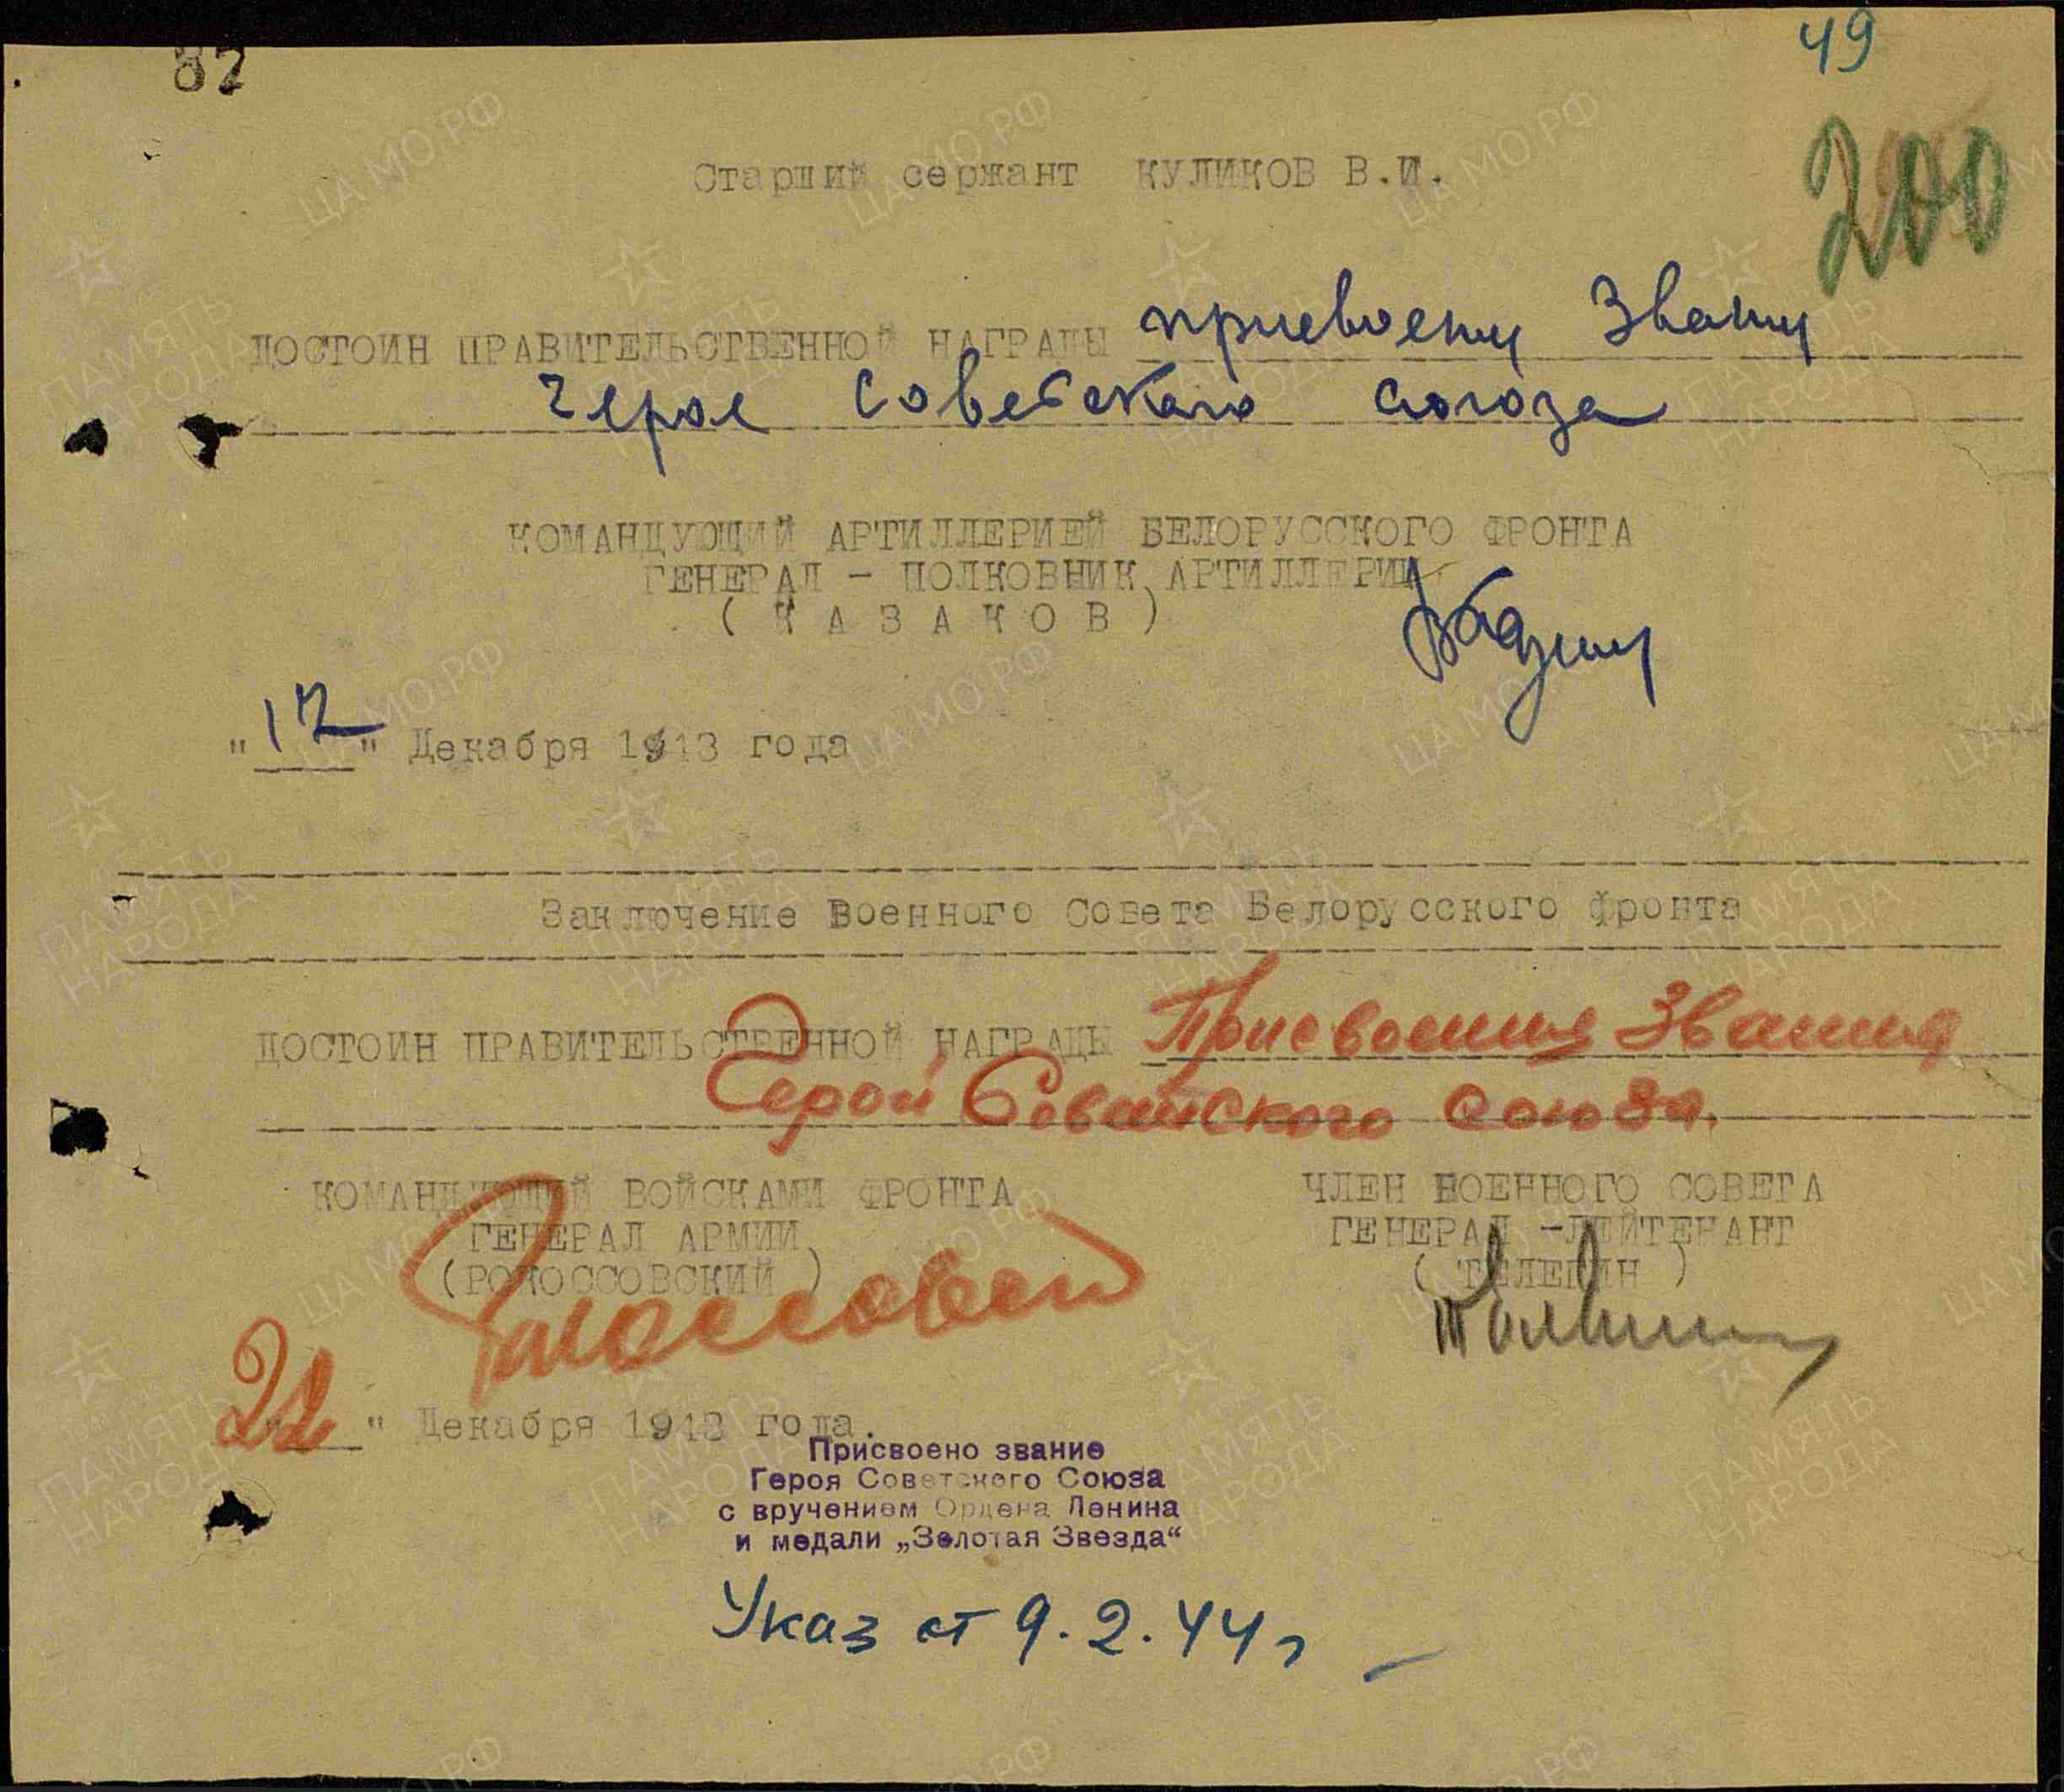 82
49
200
Старший сержант КУЛИКОВ В.И.
ДОСТОИН ПРАВИТЕЛЬСТВЕННОЙ НАГРАДЫ присвоения Звания
Героя Советского Союза
КОМАНДУЮЩИЙ АРТИЛЛЕРИЕЙ БЕЛОРУССКОГО ФРОНТА
ГЕНЕРАЛ - ПОЛКОВНИК АРТИЛЛЕРИИ
( К А З А К О В )
"12" Декабря 1943 года
Заключение Военного Совета Белорусского фронта
ДОСТОИН ПРАВИТЕЛЬСТВЕННОЙ НАГРАДЫ Присвоения Звания
Герой Советского Союза.
КОМАНДУЮЩИЙ ВОЙСКАМИ ФРОНТА
ГЕНЕРАЛ АРМИИ
(РОКОССОВСКИЙ )
ЧЛЕН ВОЕННОГО СОВЕТА
ГЕНЕРАЛ -ЛЕЙТЕНАНТ
( ТЕЛЕГИН )
22 " Декабря 1943 года.
Присвоено звание
Героя Советского Союза
с вручением Ордена Ленина
и медали „Золотая Звезда“
Указ от 9.2.44 г
ЦАМО.РФ
ПАМЯТЬ
НАРОДА